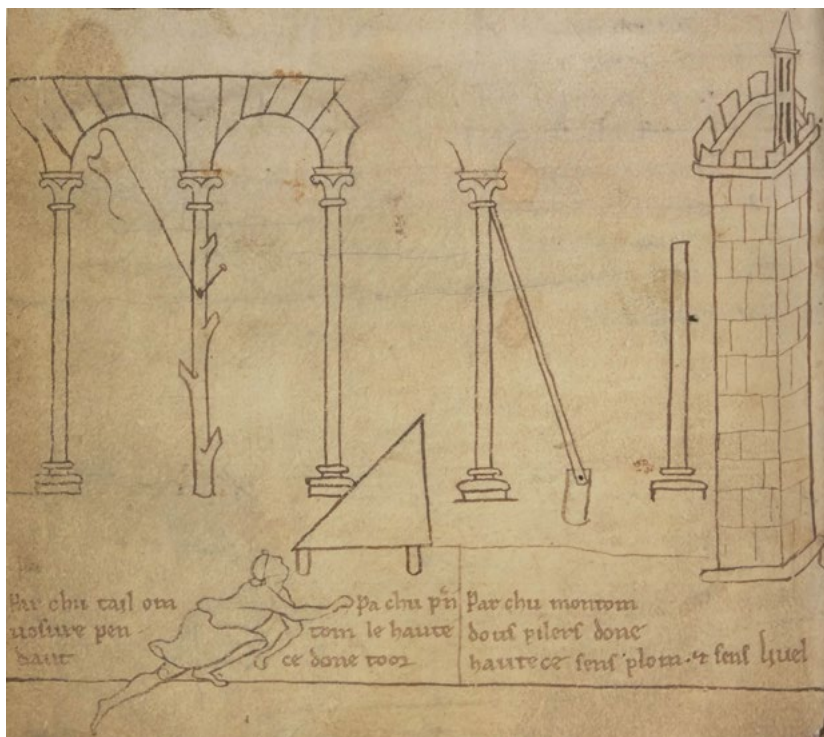 Par chu tail om
vosure pen
dant
Pa chu prn
tom le haute
ce done toor
Par chu montom
dous pilers done
hautece sens plom . et sens livel